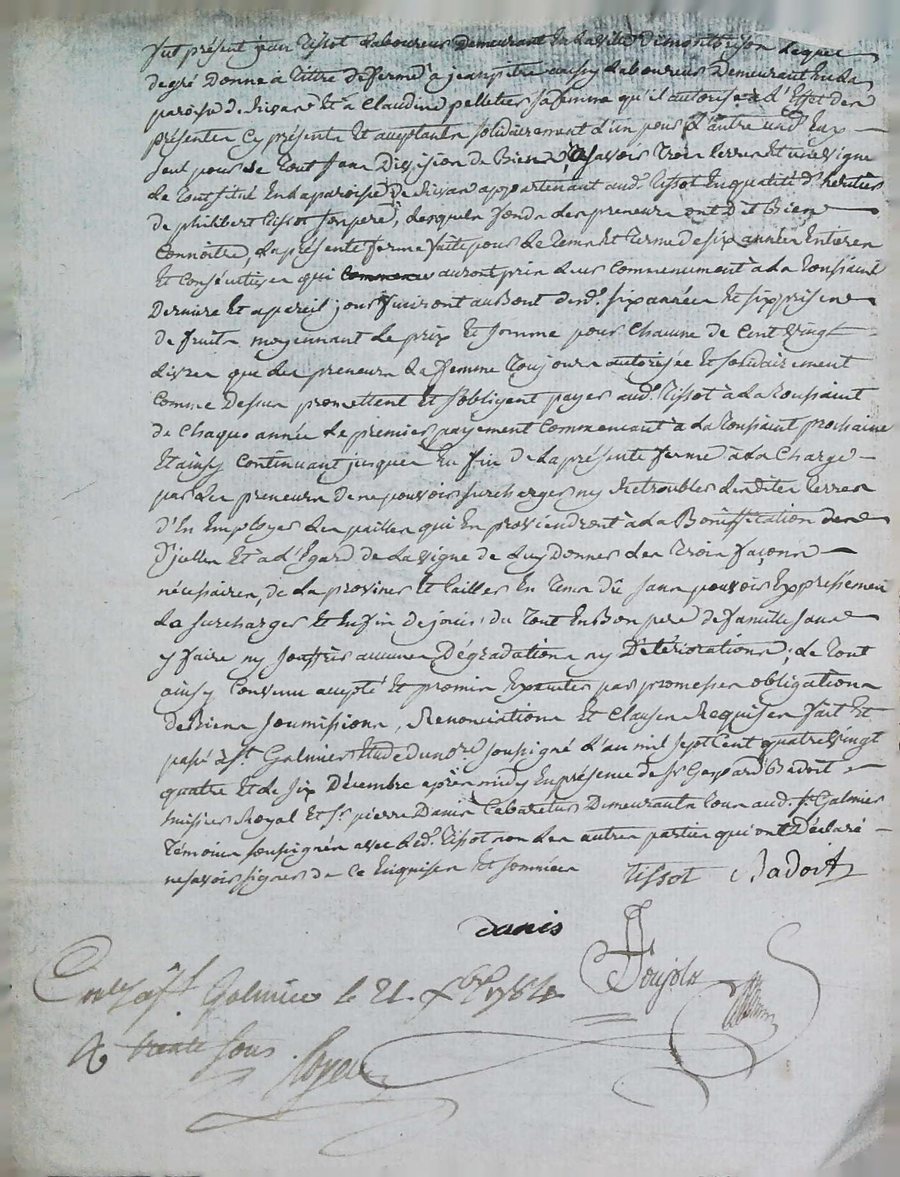 fut présent jean tissot laboureur demeurant en la ville de montbrison lequel
degré donne a tittre de ferme a jean pitre laboureur demeurant en la
paroisse de rivas Et a Claudine pelletier sa femme qu'il autorise a l'Effet des
présentes cy présents Et acceptants solidairement d'un pour l'autre un d'Eux
seul pour le tout sans Division de Biens, Asavoir trois terres Et une vigne
le tout situé En la paroisse de rivas appartenant aud. tissot En qualité d'heritier
de philibert tissot son pere, lesquels fonds les preneurs ont Dit Bien
Connoitre, la présente ferme faite pour le tems Et terme de six années Entieres
Et Consécutives qui auront pris leur Commencement a la toussaint
Derniere Et a pareil jour finiront au Bout desd. six années Et six prises
de fruits moyennant le prix Et somme pour Chacune de Cent vingt
livres que les preneurs la femme toujours autorisée Et solidairement
Comme Dessus promettent Et s'obligent payer aud. tissot a la toussaint
de Chaque année le premier payement Commencant a la toussaint prochaine
Et ainsy Continuant jusques En fin de la présente ferme a la Charge
par les preneurs de ne pouvoir surcharger ny Retroubler lesdites terres
d'En Employer les pailles qui En proviendront a la Boniffication
Et a l'Egard de la vigne de luy donner les trois façons
nécessaires, de la proviner Et tailler En tems dû sans pouvoir Expressement
la surcharger Et Enfin de jouir du tout En Bon pere de famille sans
y faire ny souffrir aucunes Dégradations ny Détériorations; le tout
ainsy Convenu accepté Et promis Executer par promesses obligations
de Biens soumissions, Renonciations Et Clauses Requises fait Et
passé a St. Galmier Etude du nore. soussigné l'an mil sept Cent quatre vingt
quatre Et le six Décembre après midy En présence de Sr Gaspard Badoit
huissier Royal Et Sr. pierre Danis Cabaretier Demeurants tous aud. St. Galmier
témoins soussignés avec led. tissot non les autres parties qui ont Déclaré
ne savoir signer de Ce Enquises Et sommées tissot Badoit
Danis
Coulé a St Galmier le 21. Xbre 1784
R trente sous